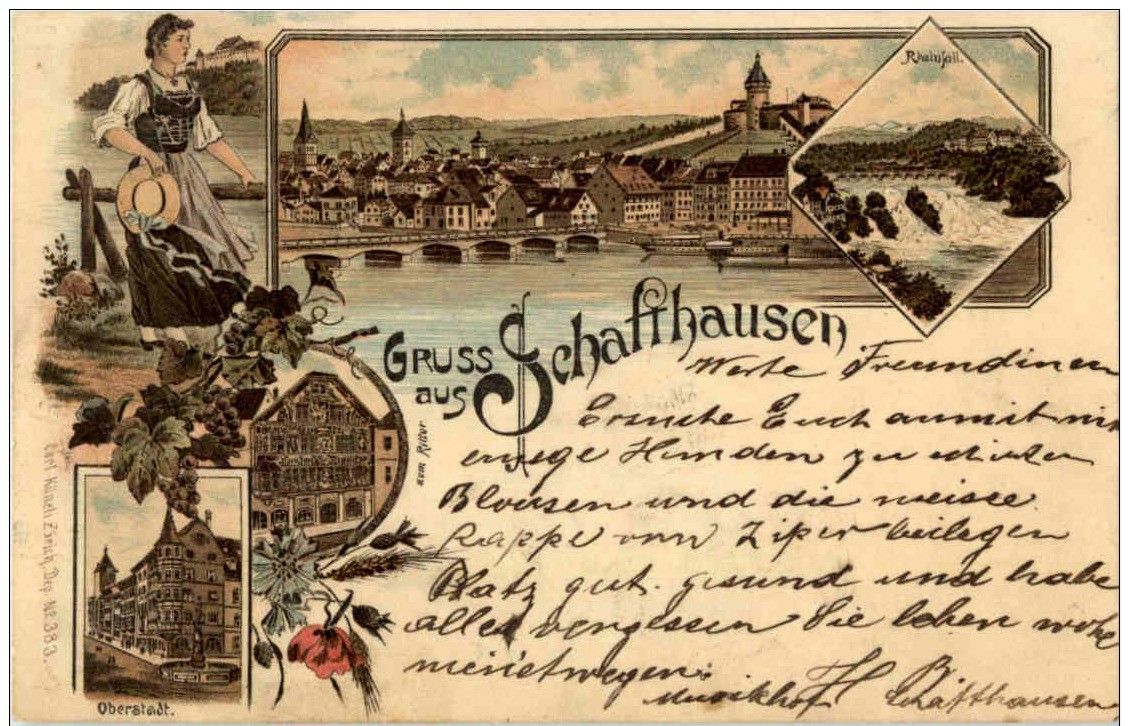 Rheinfall.
GRUSS
aus Schaffhausen
zum Ritter
Oberstadt.
Carl Künzli Zürich, Dep. No 383.
Werte Freundinen
Ersuche Euch anmit mir
einige Hemden zu
Blousen und die weisse
Kappe von Ziper beilegen
Platz gut. gesund und habe
alles vergessen Sie leben wohl
meinetwegen:
Musikhof H B Schaffhausen